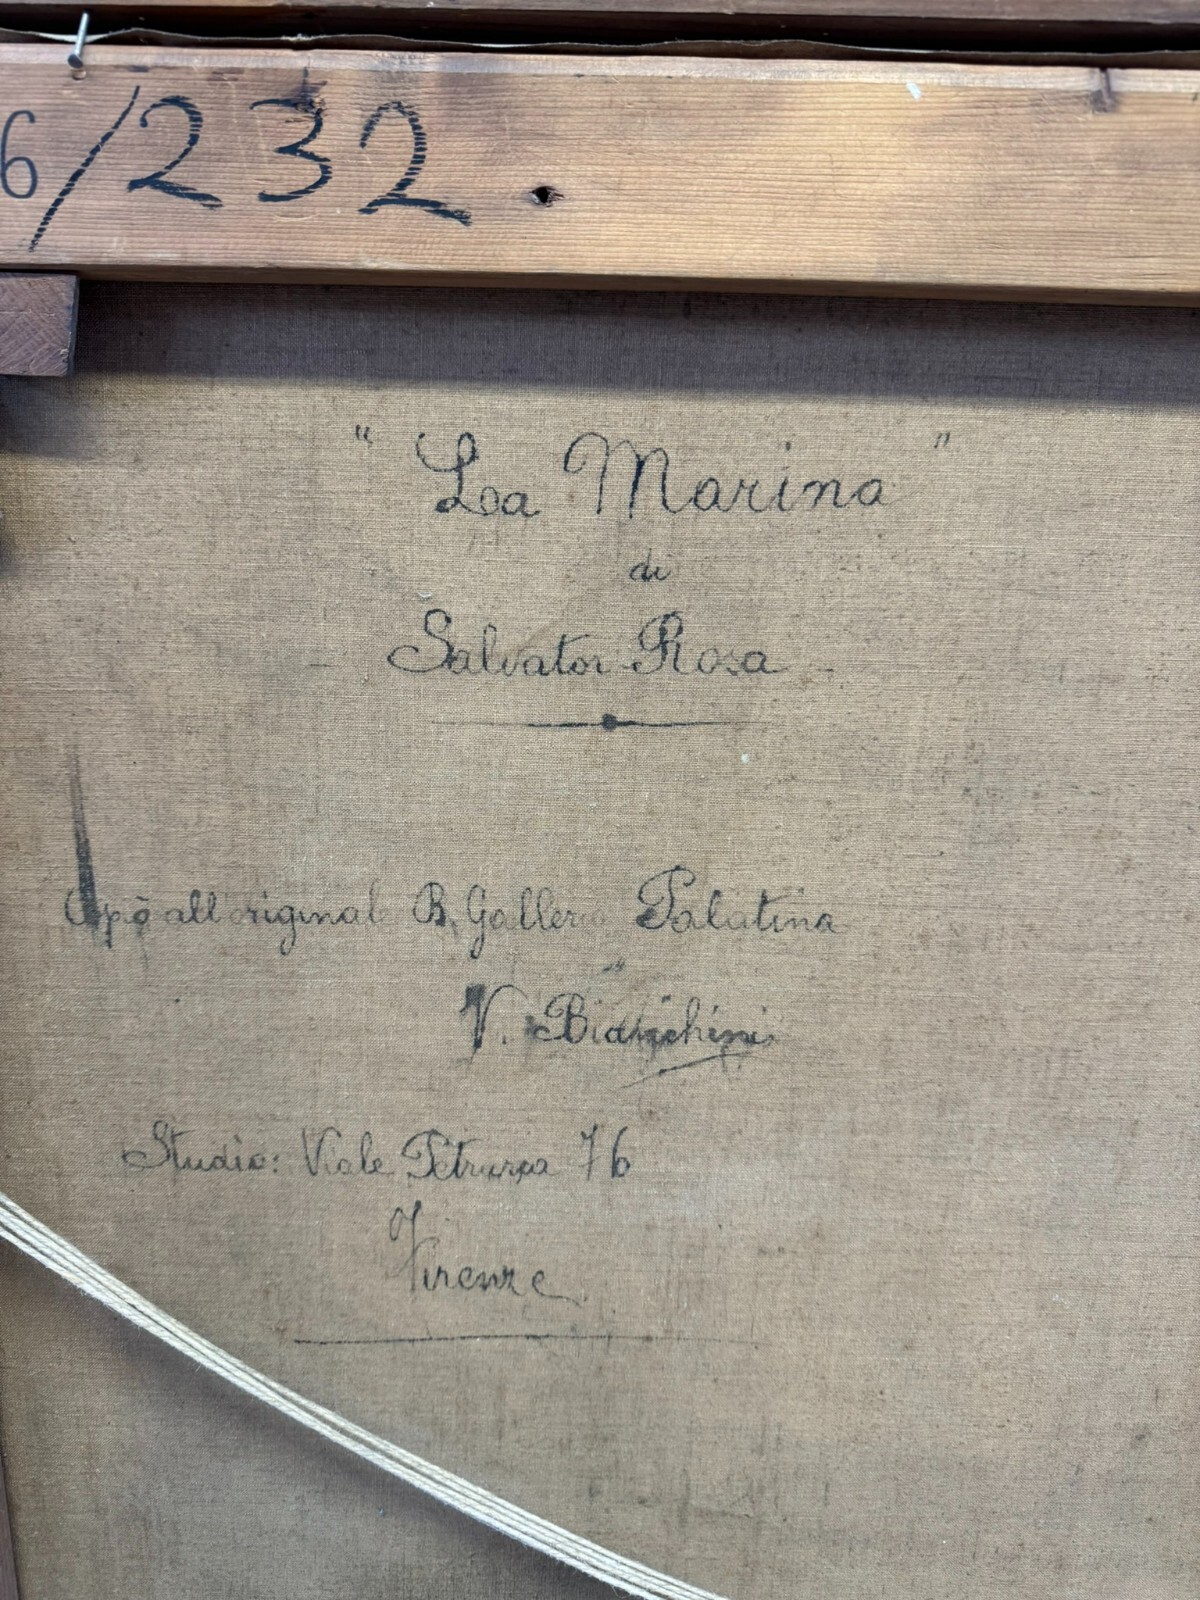 6/232.
" La Marina "
di
Salvator Rosa
all'originale B. Galleria Palatina
V. Bianchini
Studio: Viale Petrarca 76
Firenze